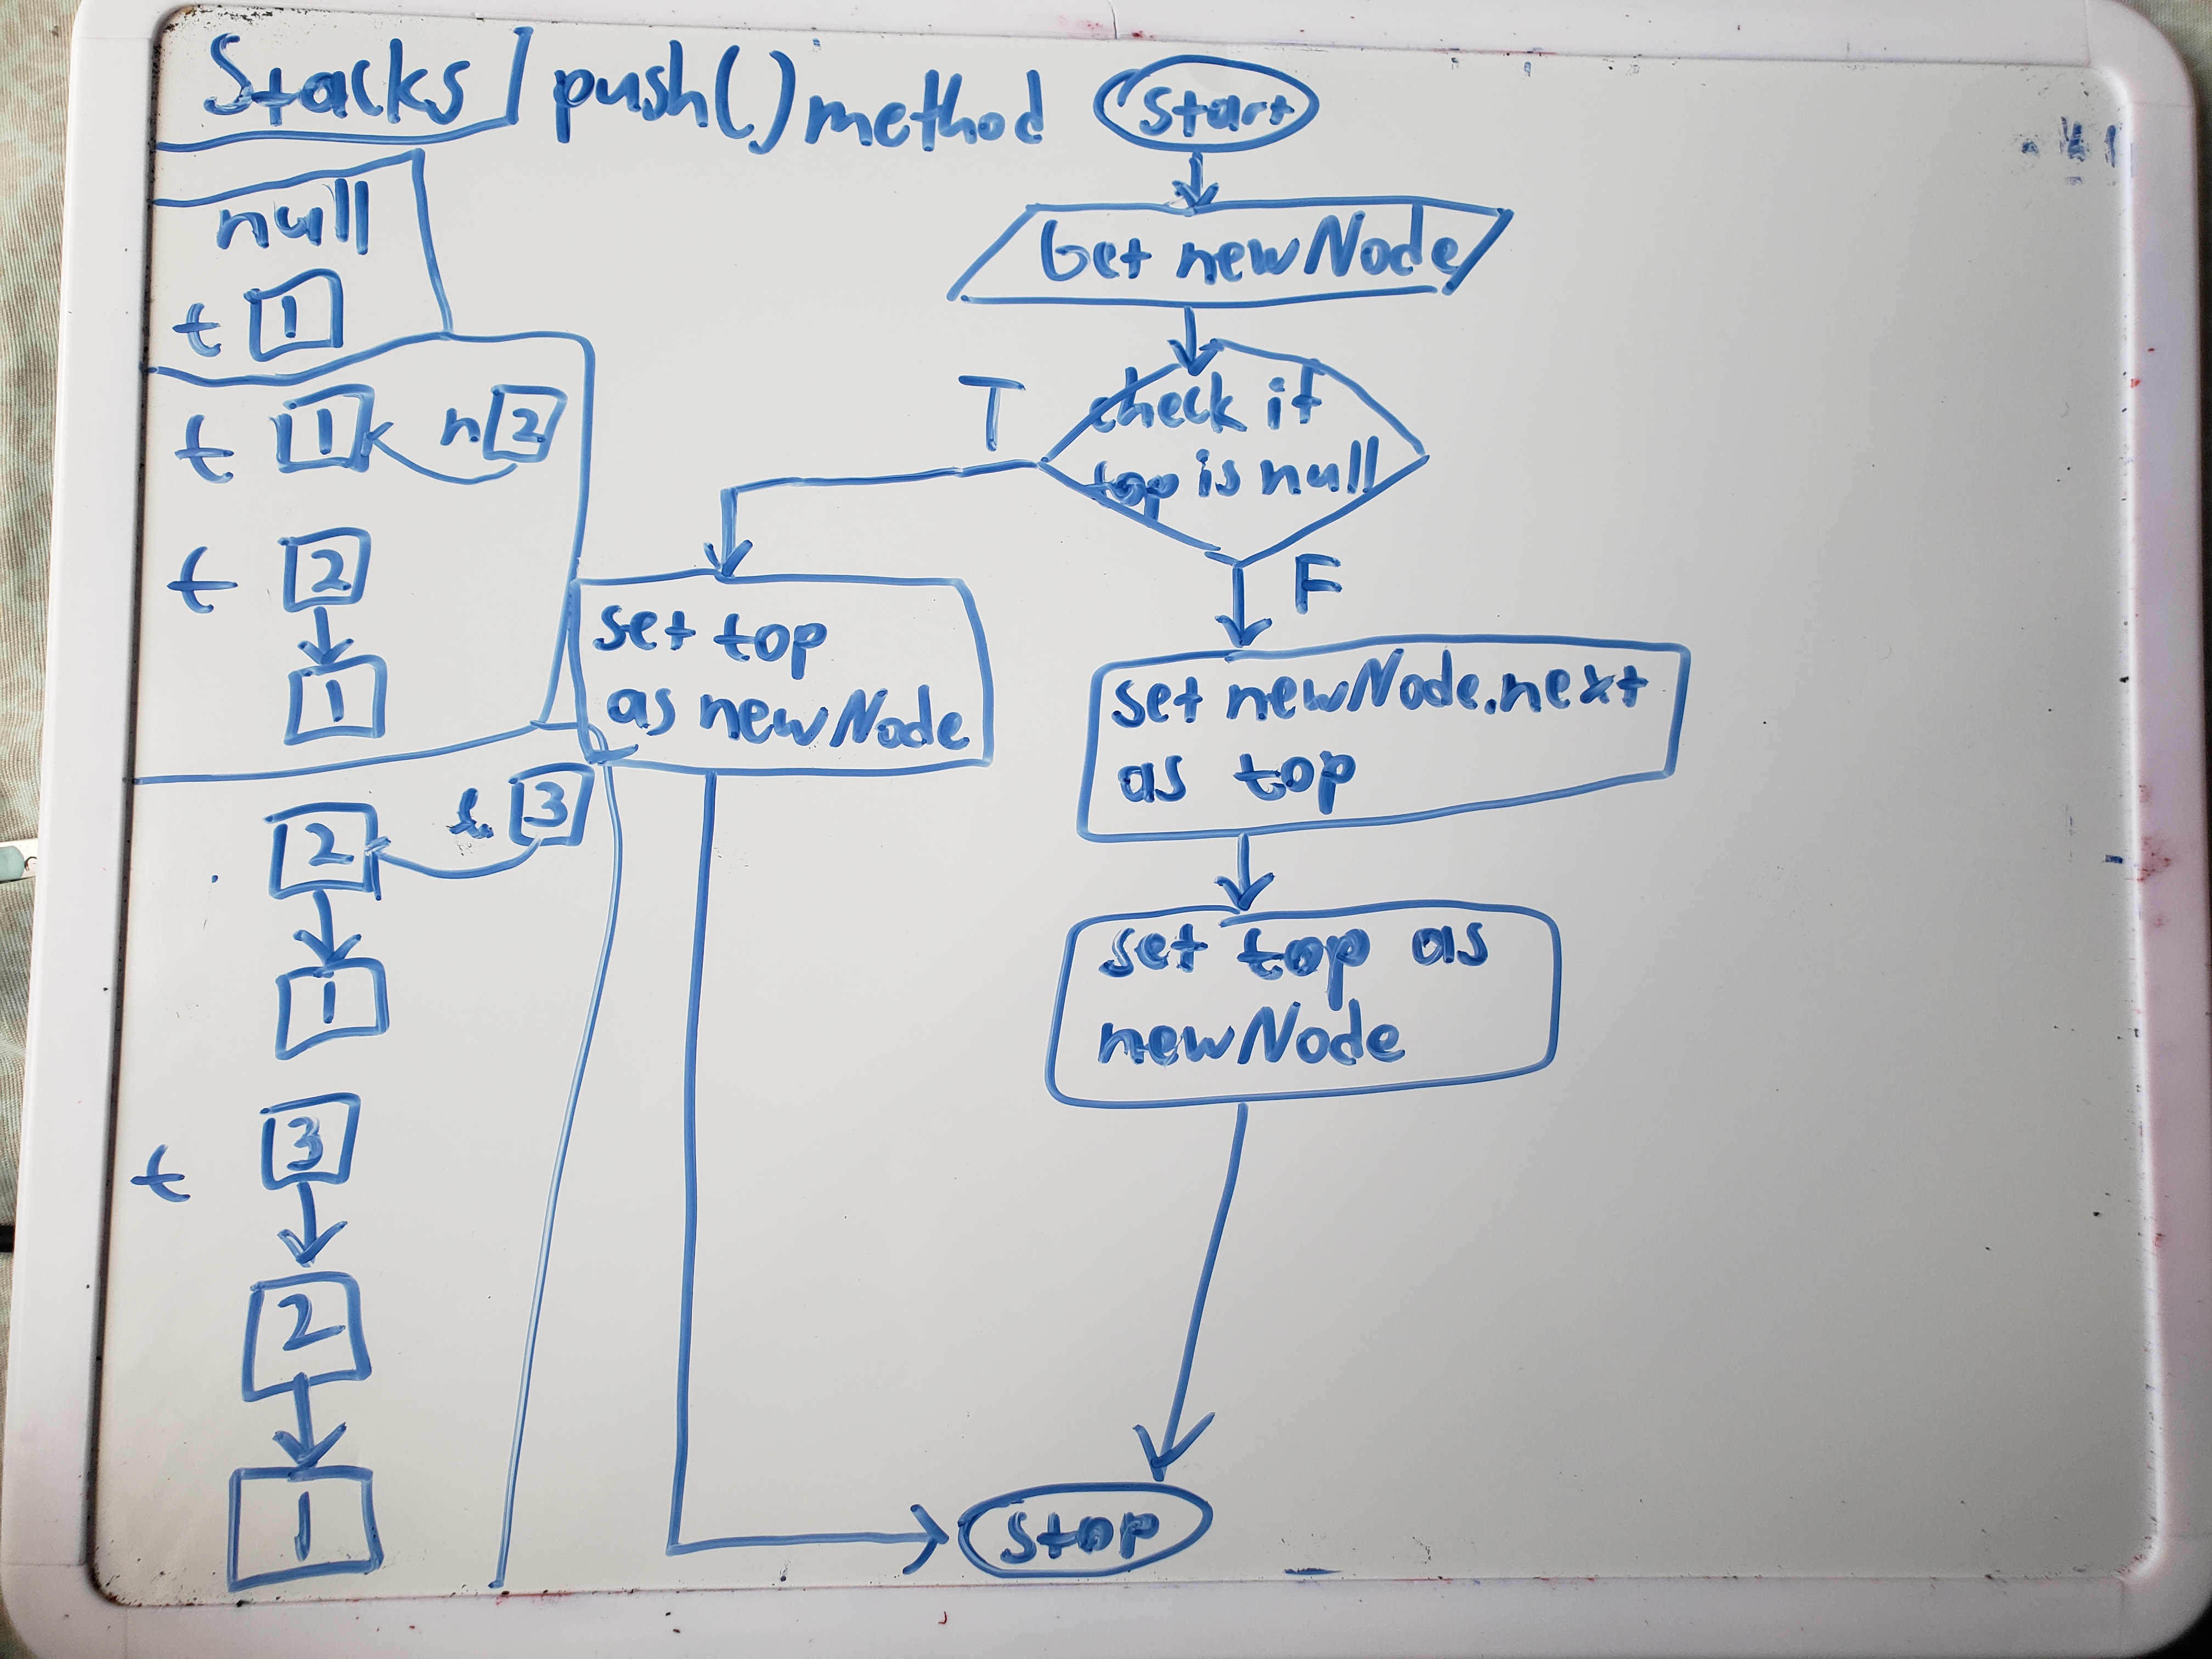 Stacks push() method
null
t 1
t 1 n 2
t 2
1
2 t 3
1
t 3
2
1
Start
Get newNode
check if
top is null
T
F
set top
as newNode
set newNode.next
as top
set top as
newNode
Stop